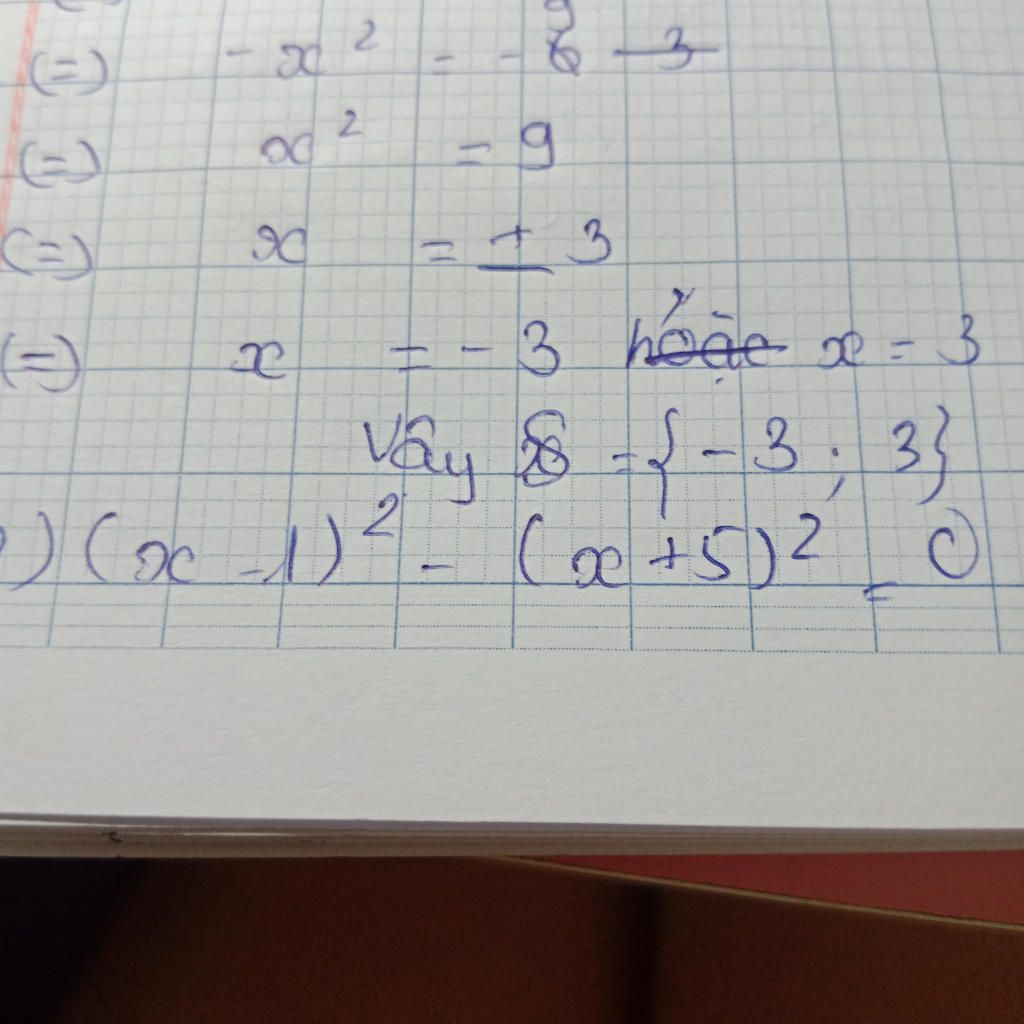 (=) - x² = - 9
(=) x² = 9
(=) x = ± 3
(=) x = - 3 x = 3
Vậy S = {- 3 ; 3}
) (x - 1)² - (x + 5)² = 0